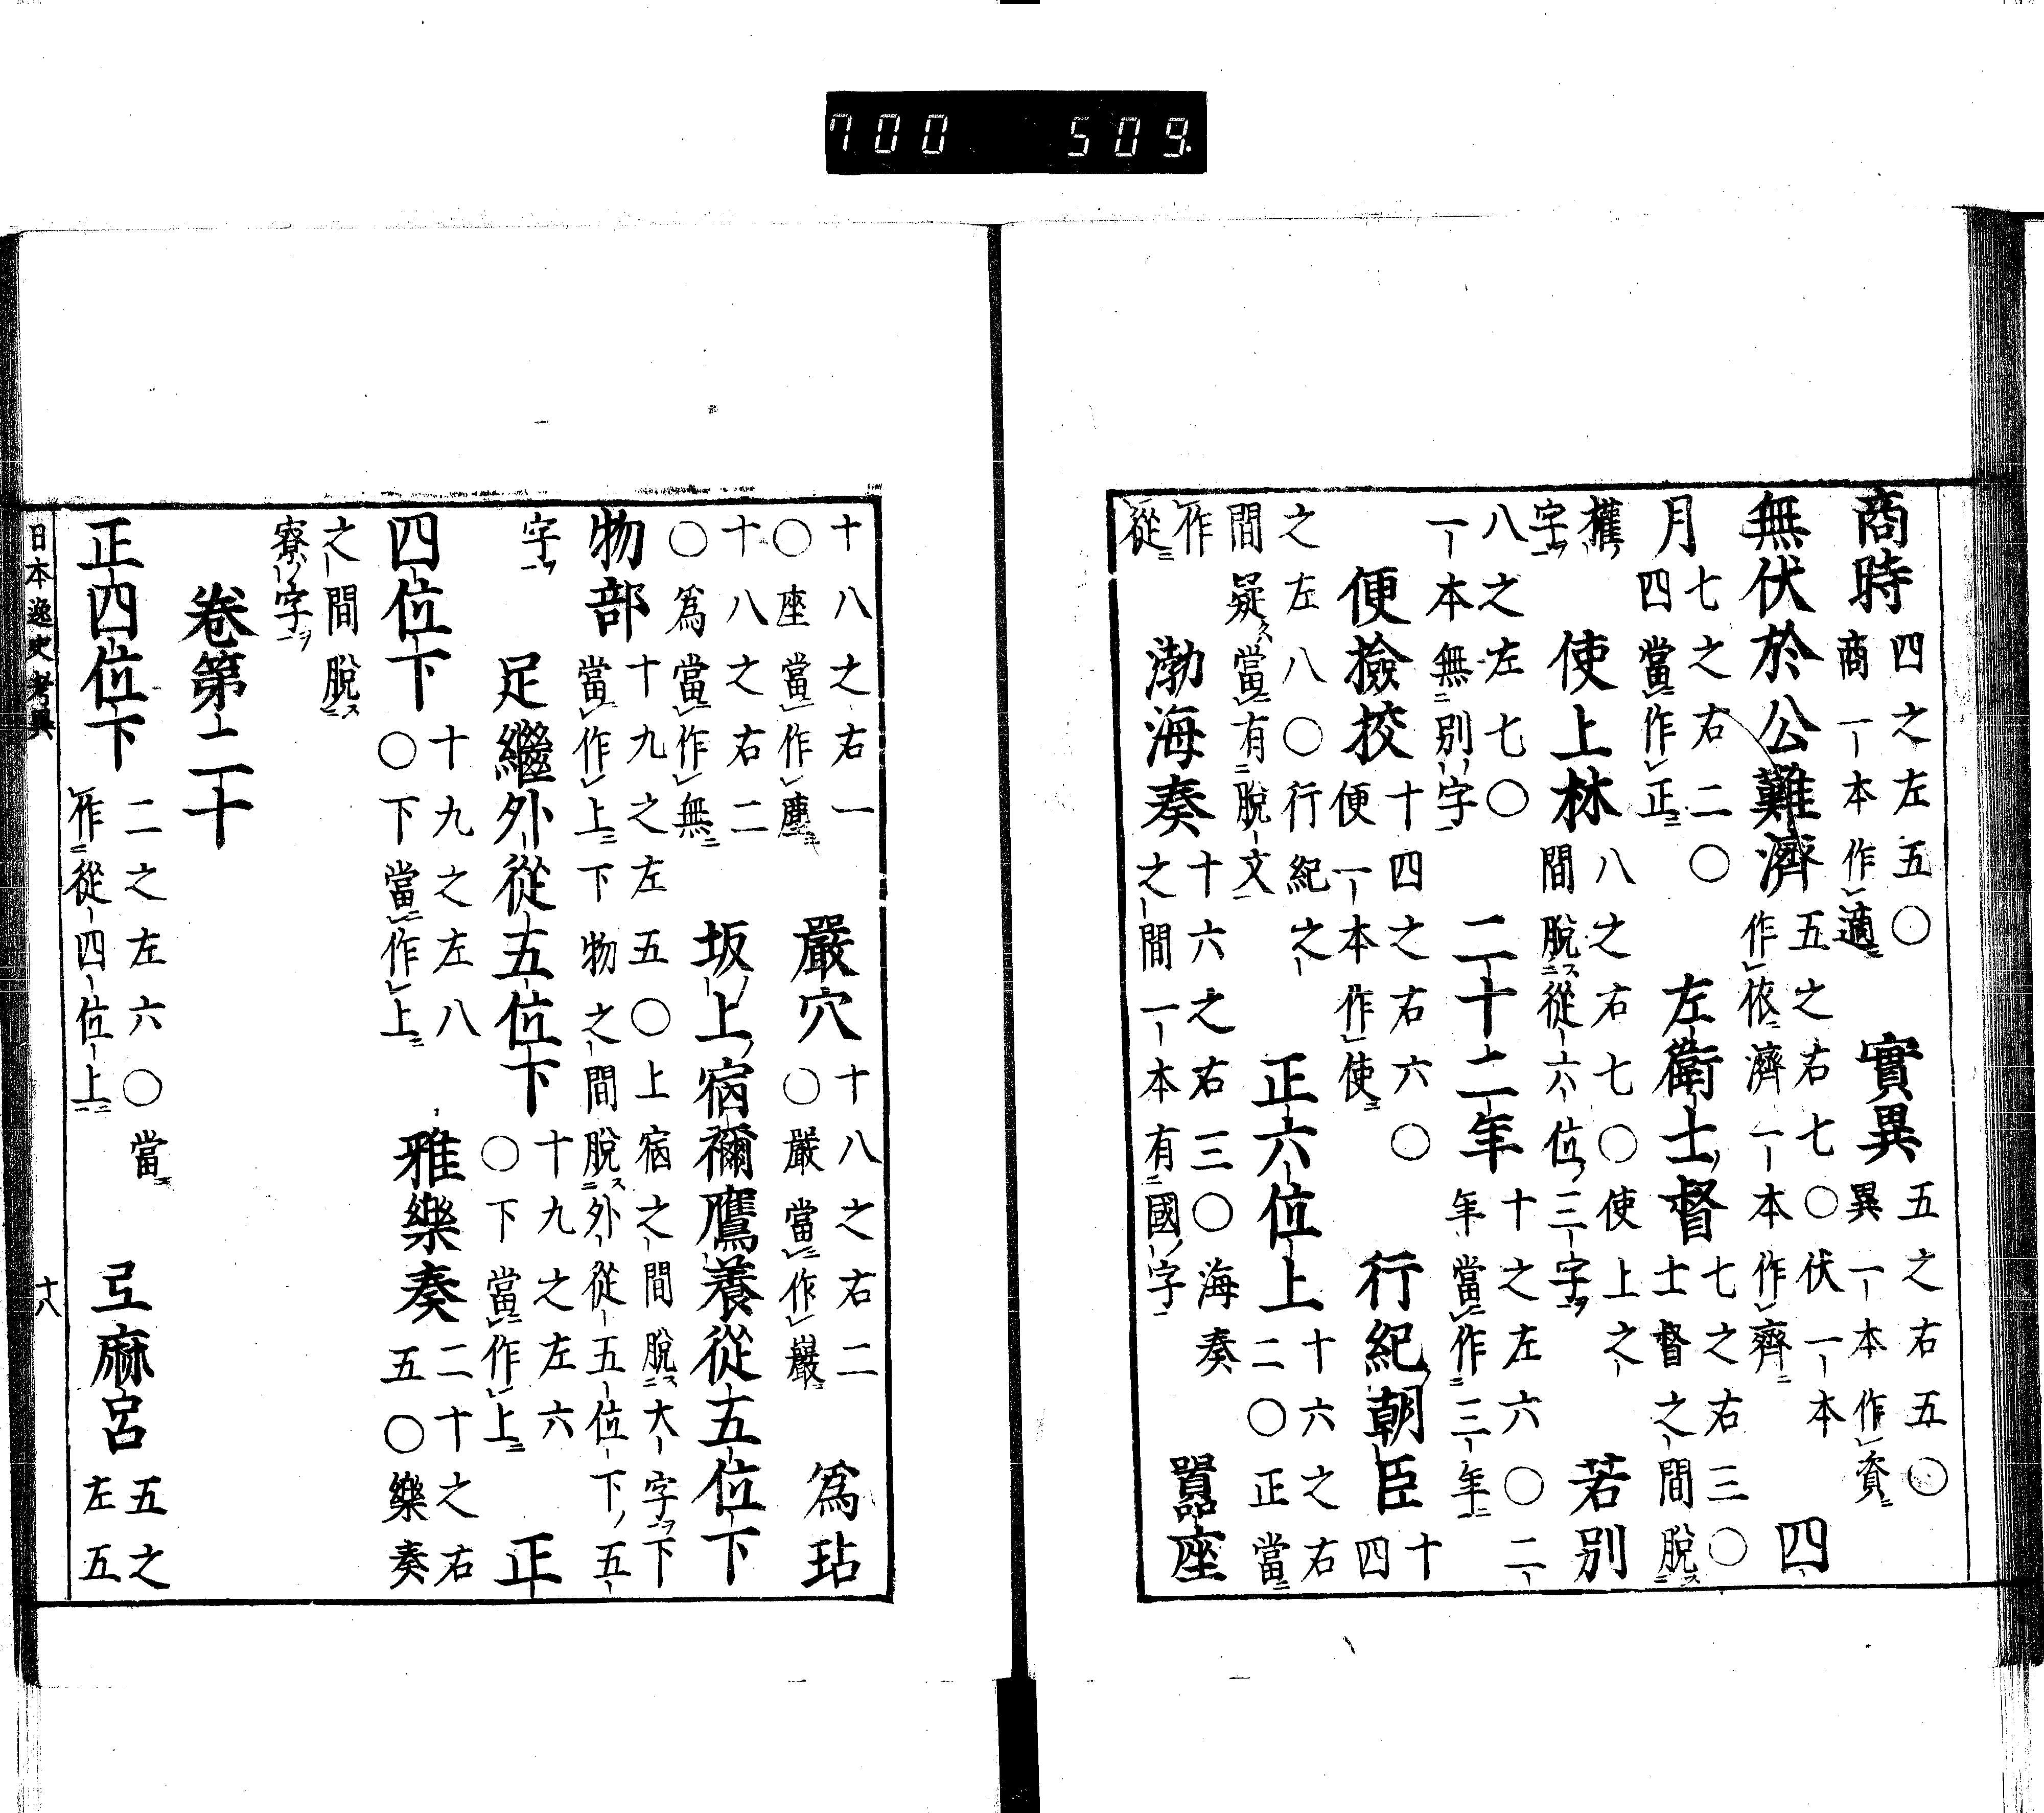 700 509
商時四之左五〇商一本作適 實異五之右五〇異一本作資
無伏於公難濟五之右七〇伏一本作依濟一本作齊 四
月七之右二〇四當作正 左衛士督七之右三〇士督之間脱
權字 使上林八之右七〇使上之間脱從六位三字 若別
八之左七〇一本無別字 二十二年十之左六〇二年當作三年
便撿挍十四之右六〇便一本作使 行紀朝臣十四
之左八〇行紀之間疑當有脱文 正六位上十六之右二〇正當
作從 渤海奏十六之右三〇海奏之間一本有國字 囂座
十八之右一〇座當作塵 嚴穴十八之右二〇嚴當作巖 爲玷
十八之右二〇爲當作無 坂上宿禰鷹養從五位下
物部十九之左五〇上宿之間脱大字下當作上下物之間脱外從五位下ノ五
字 足繼外從五位下十九之左六〇下當作上 正
四位下十九之左八〇下當作上 雅樂奏二十之右五〇樂奏
之間脱寮字
卷第二十
正四位下二之左六〇當作從四位上 弖麻呂五之左五
日本逸史考異 十八